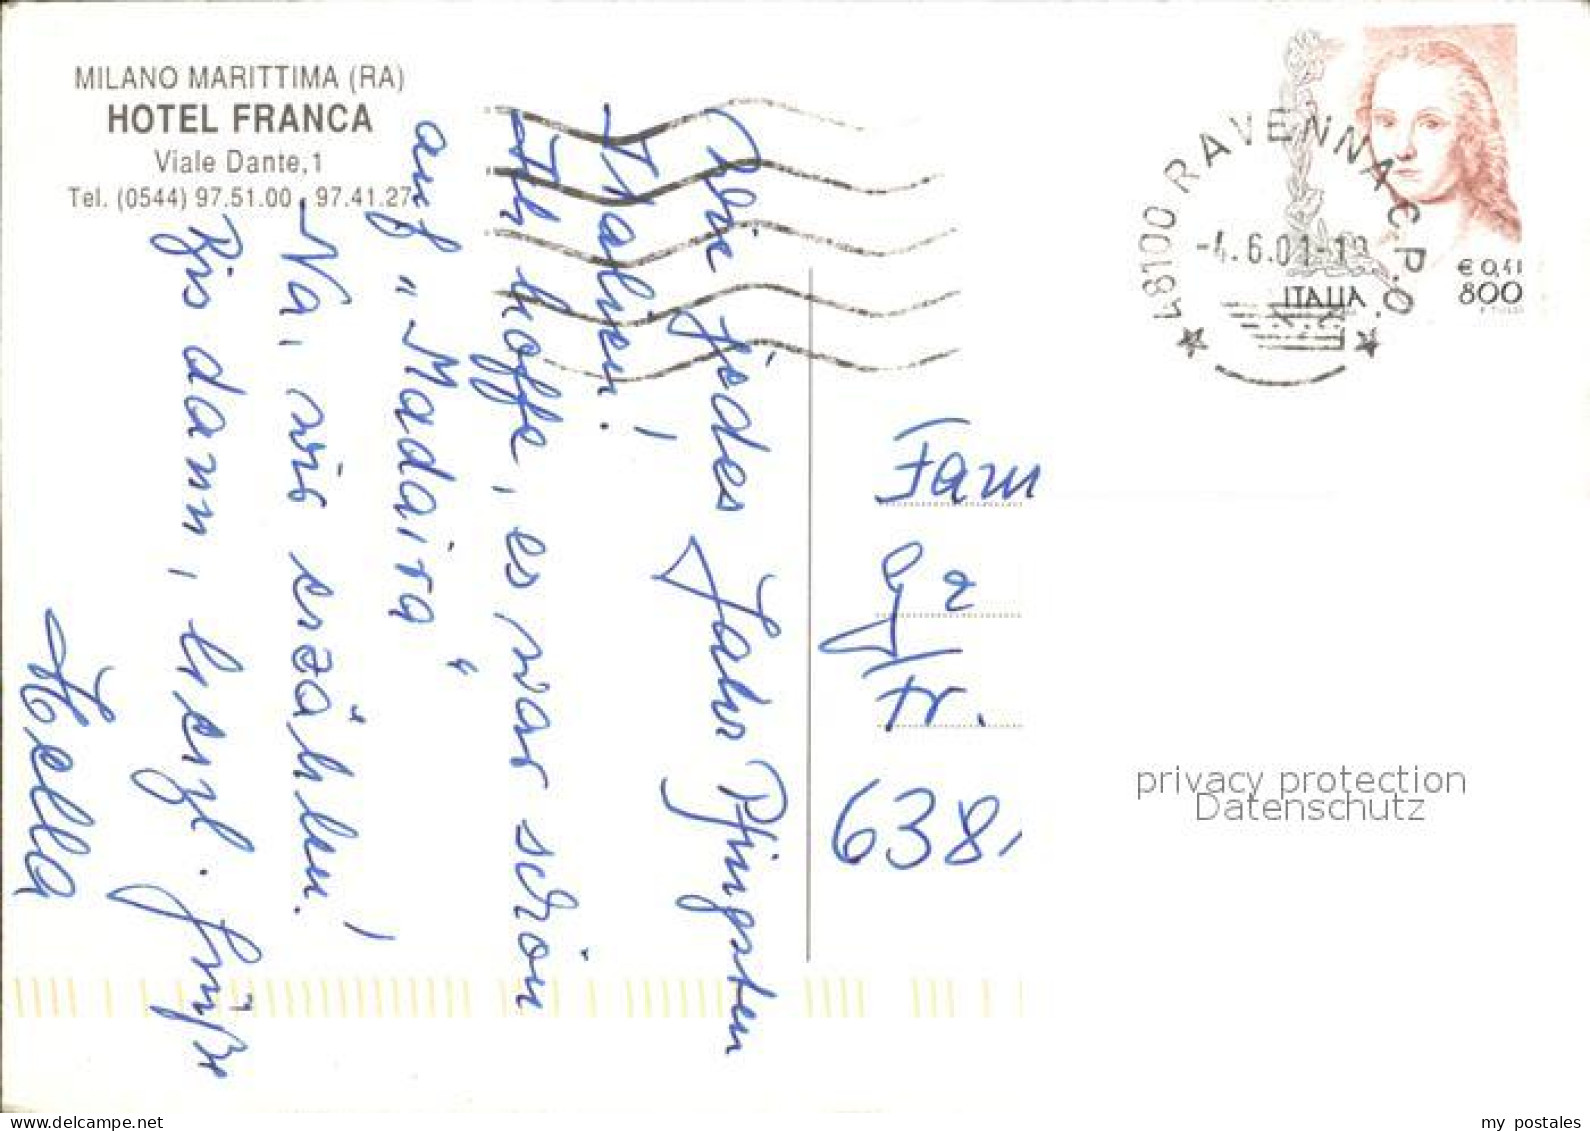 MILANO MARITTIMA (RA)
HOTEL FRANCA
Viale Dante, 1
Tel. (0544) 97.51.00 - 97.41.27
48100 RAVENNA C.P.O.
-4.6.01-19
ITALIA
€ 0,41
800
Wie jedes Jahr Pfingsten
Italien!
Ich hoffe, es war schön
auf "Madaira"
Na, wir erzählen!
Bis dann, herzl. Grüße
Hella
Fam
638
privacy protection
Datenschutz
my postales